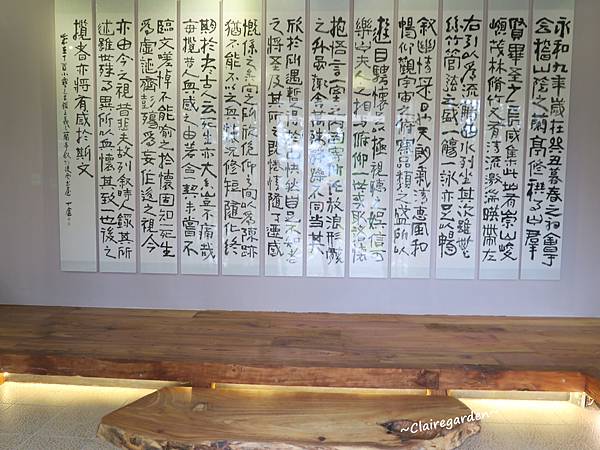 永和九年歲在癸丑暮春之初會于
會稽山陰之蘭亭脩禊事也羣
賢畢至少長咸集此地有崇山峻
嶺茂林脩竹又有清流激湍暎帶左
右引以為流觴曲水列坐其次雖無
絲竹管弦之盛一觴一詠亦足以暢
叙幽情是日也天朗氣清惠風和
暢仰觀宇宙之大俯察品類之盛所以
遊目騁懷足以極視聽之娛信可
樂也夫人之相與俯仰一世或取諸懷
抱悟言一室之內或因寄所託放浪形骸
之外雖趣舍萬殊靜躁不同當其
欣於所遇暫得於己快然自足不知老
之將至及其所之既惓情隨事遷感
慨係之矣向之所欣俛仰之間以為陳跡
猶不能不以之興懷況脩短隨化終
期於盡古人云死生亦大矣豈不痛哉
每攬昔人興感之由若合一契未嘗不
臨文嗟悼不能喻之於懷固知一死生
為虛誕齊彭殤為妄作後之視今
亦由今之視昔悲夫故列叙時人錄其所
述雖世殊事異所以興懷其致一也後之
攬者亦將有感於斯文
~Clairegarden~